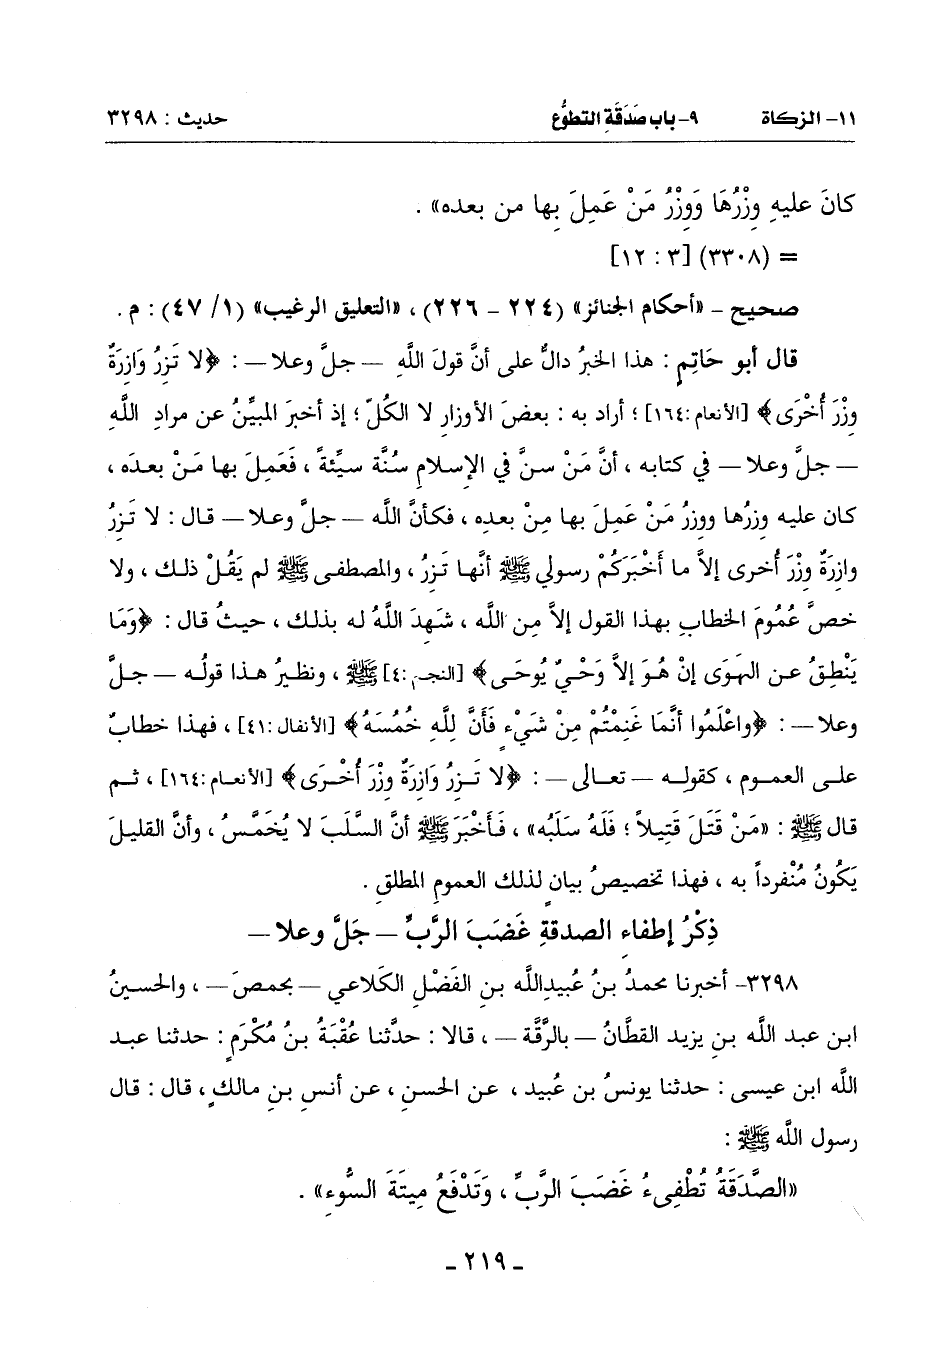 ١١- الزكاة ٩- باب صَدَقَةِ التطوُّع حديث : ٣٢٩٨
كانَ عليهِ وِزْرُهَا وَوِزْرُ مَنْ عَمِلَ بِها من بعده» .
= (٣٣٠٨) [٣ : ١٢]
صحيح – «أحكام الجنائز» (٢٢٤ – ٢٢٦) ، «التعليق الرغيب» (١/ ٤٧) : م .
قال أبو حَاتِمٍ : هذا الخبرُ دالٌّ على أنَّ قولَ اللَّهِ — جلَّ وعلا — : ﴿لا تَزِرُ وَازِرَةٌ
وِزْرَ أُخْرَى﴾ [الأنعام:١٦٤] ؛ أراد به : بعضَ الأوزارِ لا الكُلّ ؛ إذ أخبرَ المبيِّنُ عن مرادِ اللَّهِ
— جلَّ وعلا — في كتابه ، أنَّ مَنْ سنَّ في الإسلامِ سُنَّة سيِّئةً ، فَعَمِلَ بها مَنْ بعدَه ،
كان عليه وِزرُها ووِزرُ مَنْ عَمِلَ بها مِنْ بعدِه ، فكأنَّ اللَّه — جلَّ وعلا — قال : لا تَزِرُ
وازِرَةٌ وِزْرَ أُخرى إلاَّ ما أَخْبَرَكُمْ رسولي ﷺ أنَّها تَزِرُ ، والمصطفى ﷺ لم يَقُلْ ذلك ، ولا
خصَّ عُمُومَ الخطابِ بهذا القول إلاَّ مِن اللَّه ، شَهِدَ اللَّهُ له بذلك ، حيثُ قال : ﴿وَمَا
يَنْطِقُ عن الهَوَى إنْ هُوَ إلاَّ وَحْيٌ يُوحَى﴾ [النجم:٤] ﷺ ، ونظيرُ هذا قولُه — جلَّ
وعلا — : ﴿واعْلَمُوا أنَّمَا غَنِمْتُمْ مِنْ شَيْءٍ فَأَنَّ لِلَّهِ خُمُسَهُ﴾ [الأنفال:٤١] ، فهذا خطابٌ
على العموم ، كقوله — تعالى — : ﴿لا تَزِرُ وَازِرَةٌ وِزْرَ أُخْرَى﴾ [الأنعام:١٦٤] ، ثم
قال ﷺ : «مَنْ قَتَلَ قَتِيلاً ؛ فَلَهُ سَلَبُه» ، فَأَخْبَرَ ﷺ أنَّ السَّلَبَ لا يُخَمَّسُ ، وأنَّ القليلَ
يَكُونُ مُنْفرداً به ، فهذا تخصيصُ بيانٍ لذلك العمومِ المطلق .
ذِكْرُ إطفاء الصدقةِ غَضَبَ الرَّبِّ — جَلَّ وعلا —
٣٢٩٨- أخبرنا محمدُ بنُ عُبيدِاللَّه بنِ الفَضْل الكَلاعي — بحمصَ — ، والحسينُ
ابن عبد الله بن يزيد القطَّانُ — بالرَّقَّة — ، قالا : حدَّثنا عُقْبَةُ بنُ مُكْرَم : حدثنا عبد
الله ابن عيسى : حدثنا يونسُ بن عُبيد ، عن الحسنِ ، عن أنسِ بنِ مالكٍ ، قال : قال
رسول الله ﷺ :
«الصَّدَقَةُ تُطْفِىءُ غَضَبَ الرَّبِّ ، وَتَدْفَعُ مِيتَةَ السُّوءِ» .
- ٢١٩ -